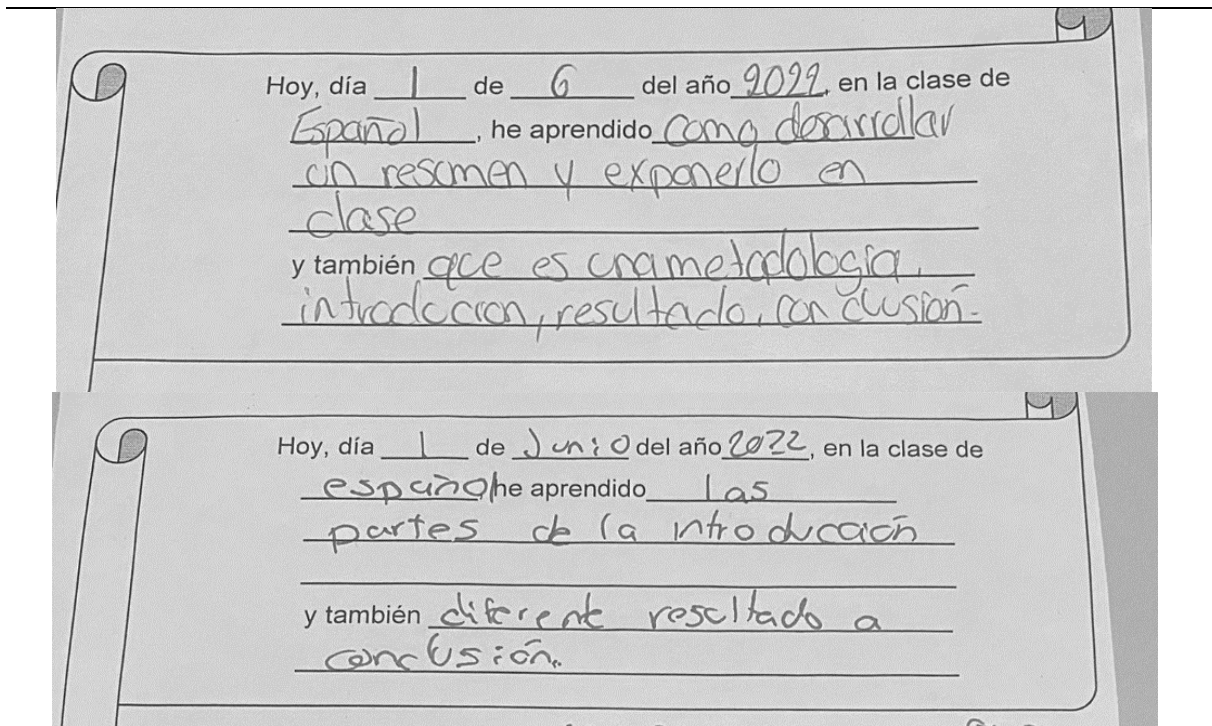 Hoy, día 1 de 6 del año 2022, en la clase de
Español, he aprendido como desarrollar
un resumen y exponerlo en
clase
y también que es una metodología,
introduccion, resultado, conclusión.
Hoy, día 1 de Junio del año 2022, en la clase de
español he aprendido las
partes de la introducción
y también diferente resultado a
conclusión.